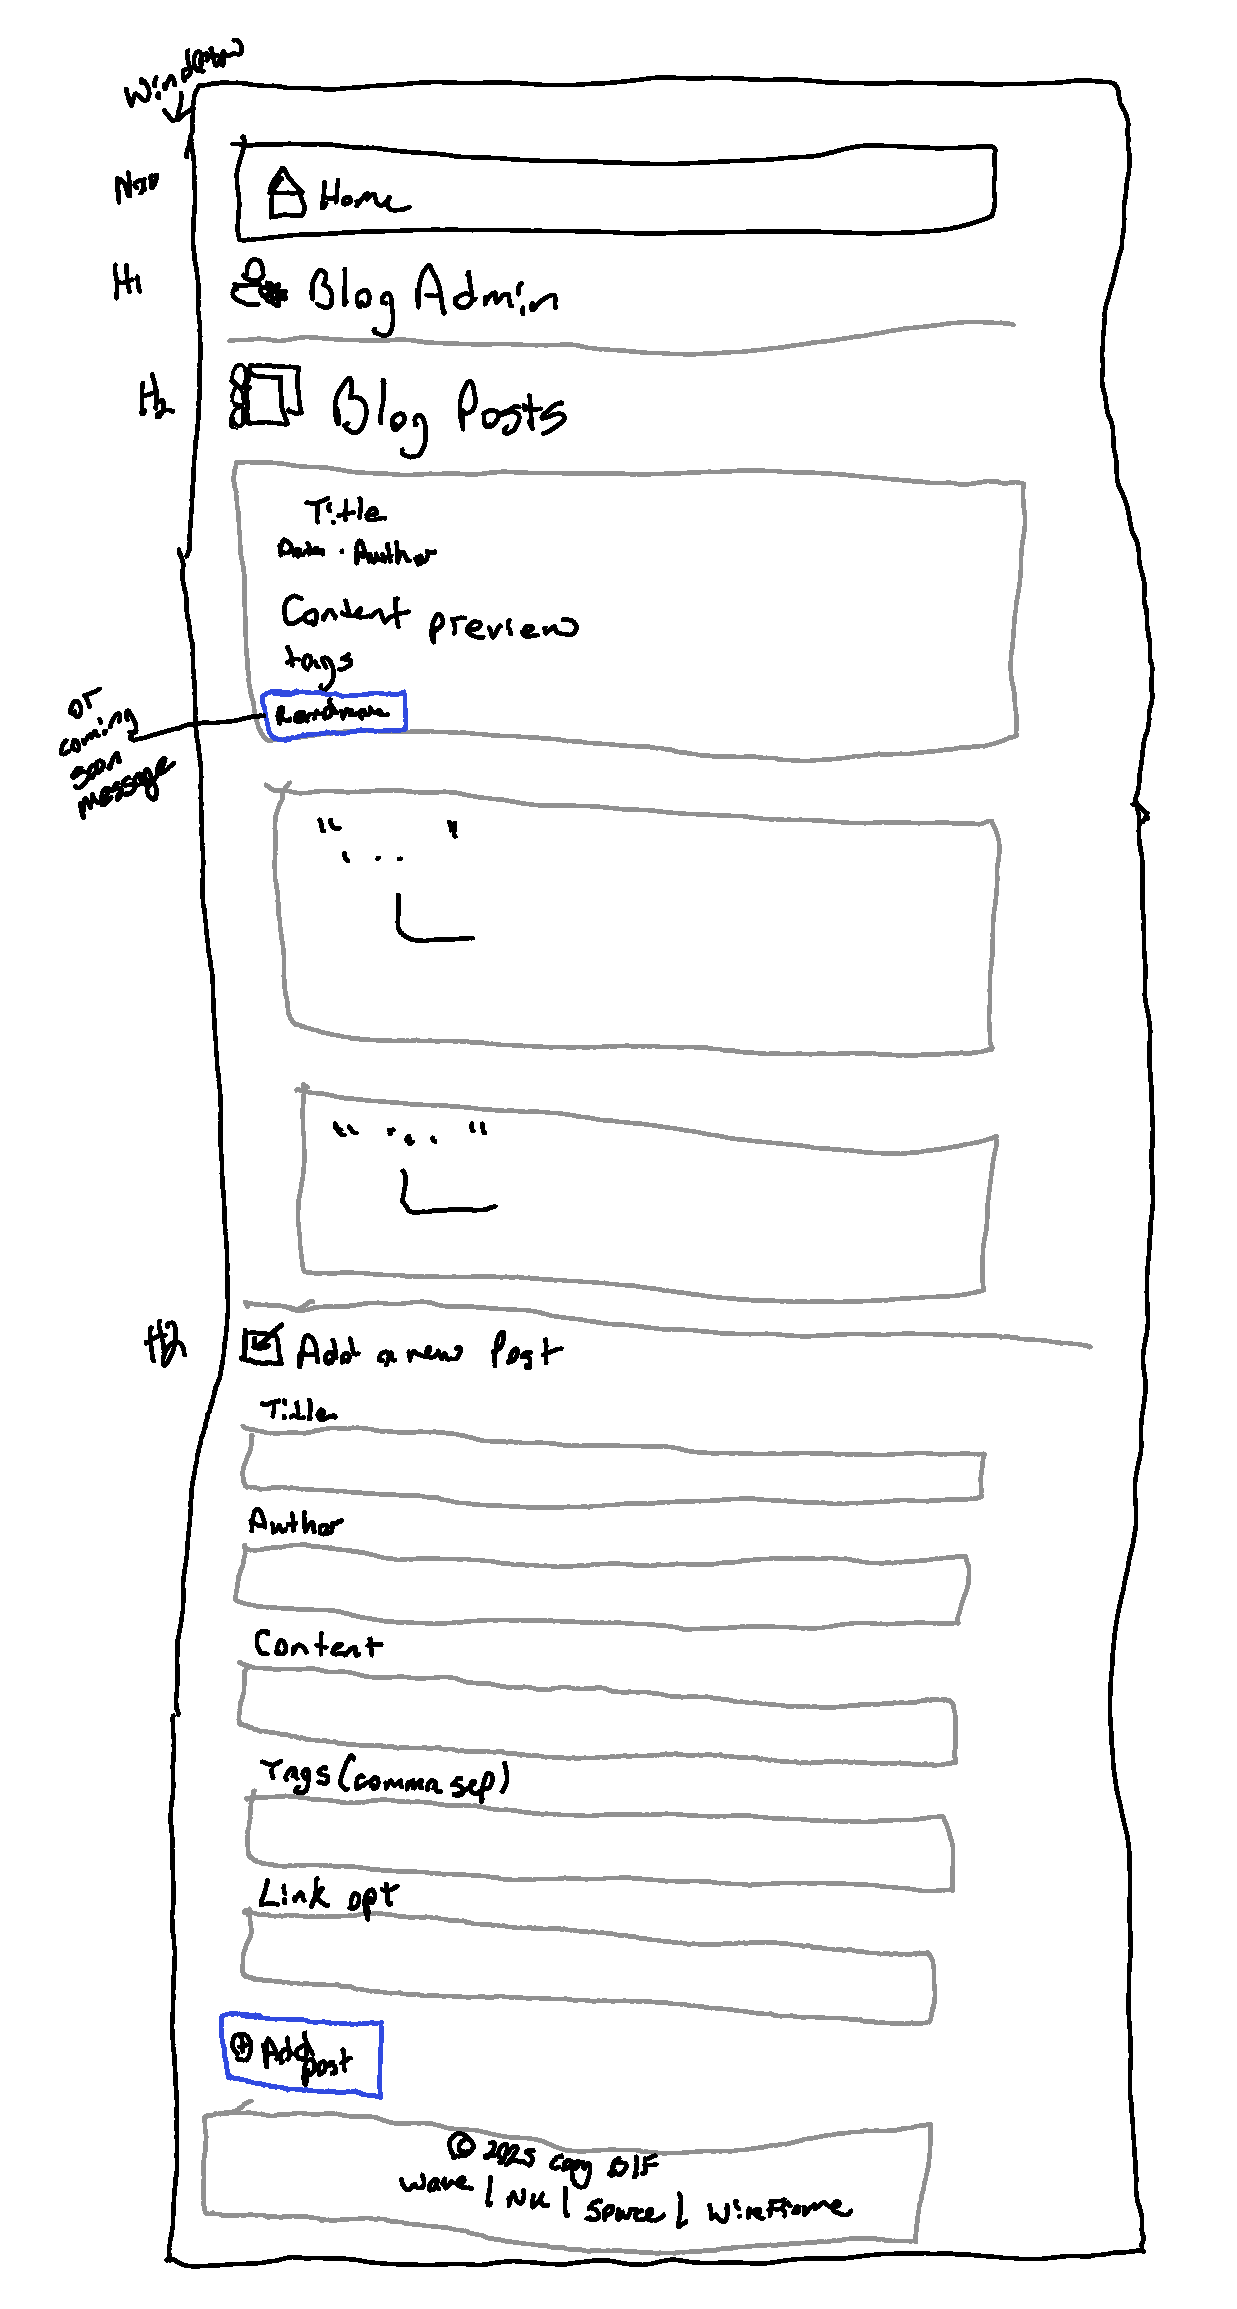 Window
Nav
Home
H1
Blog Admin
H2
Blog Posts
Title
Date · Author
Content preview
tags
Readmore
or
coming
soon
message
" ... "
" ... "
H2
Add a new Post
Title
Author
Content
Tags (comma sep)
Link opt
Add
post
© 2025 Copy
Wave | Nu | Source | Wireframe